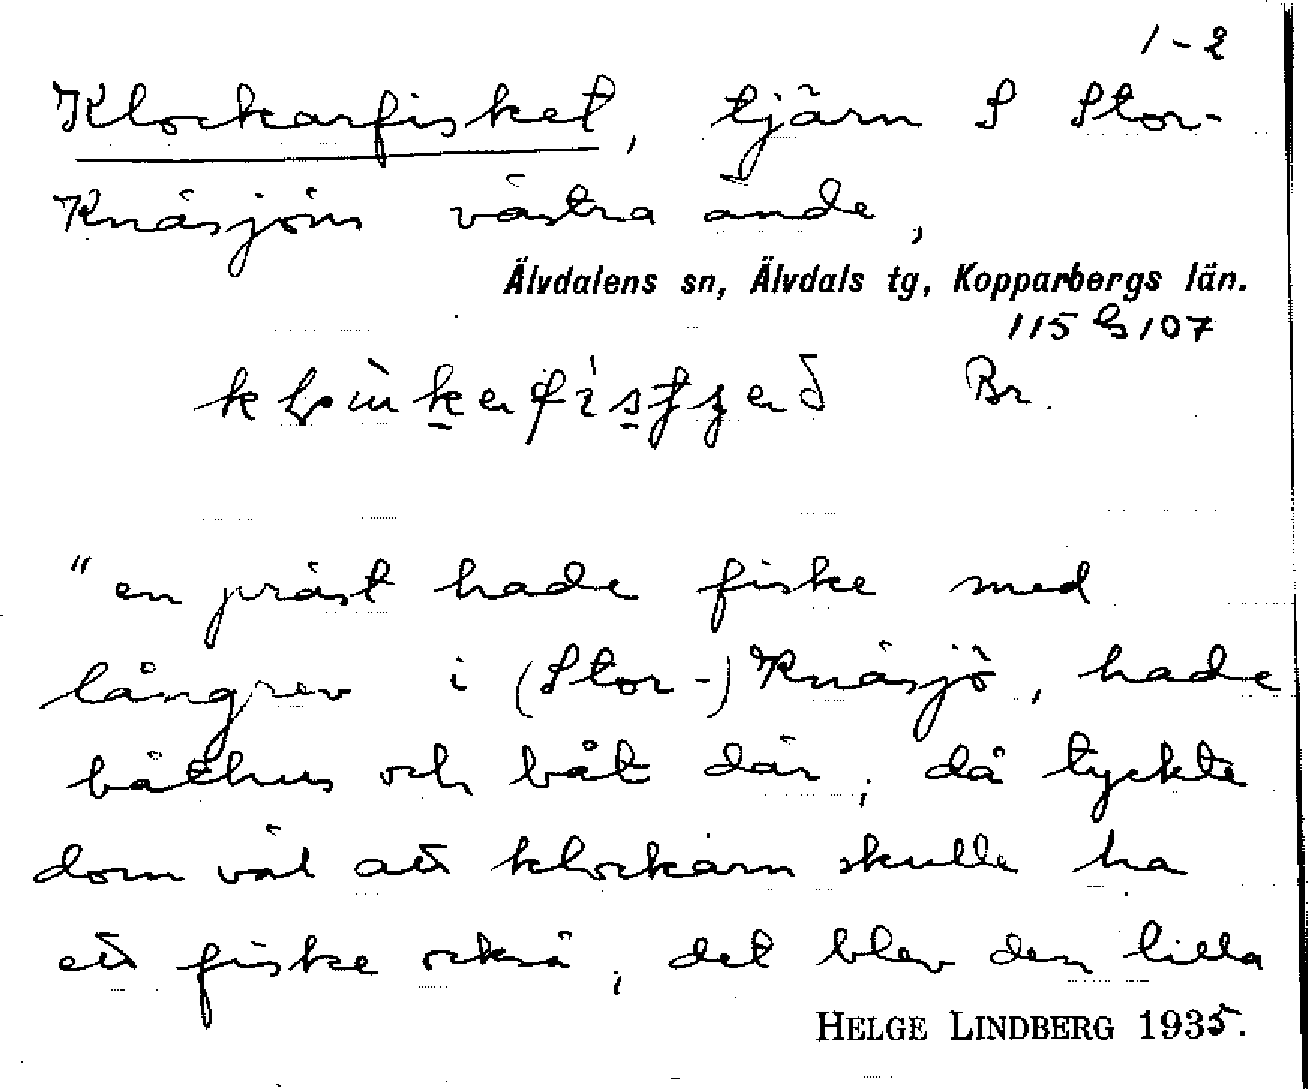 1-2
Klockarfisket, tjärn S Stor-
Knäsjöns västra ände,
Älvdalens sn, Älvdals tg, Kopparbergs län.
115 G 107
Br.
"en präst hade fiske med
långrev i (Stor-) Knäsjö, hade
båthus och båt där, då tyckte
dom väl att klockarn skulle ha
ett fiske också, det blev den lilla
HELGE LINDBERG 1935.